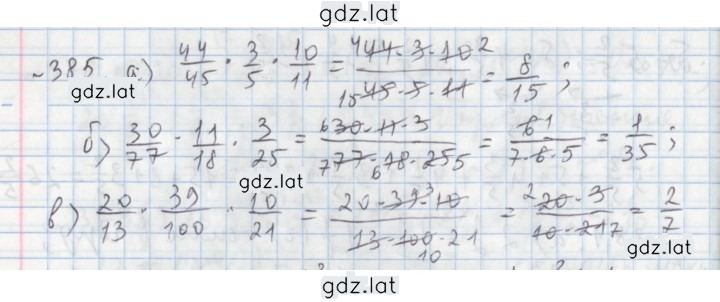 gdz.lat
№385. а) 44/45 · 3/5 · 10/11 = 4 44 · 3 · 10 2 / 15 45 · 5 · 11 = 8/15 ;
gdz.lat
gdz.lat
б) 30/77 · 11/18 · 3/25 = 6 30 · 11 · 3 / 7 77 · 6 18 · 25 5 = 6 1 / 7 · 6 · 5 = 1/35 ;
gdz.lat
в) 20/13 · 39/100 · 10/21 = 20 · 39 3 · 10 / 13 · 100 10 · 21 = 2 20 · 3 / 10 · 21 7 = 2/7
gdz.lat
gdz.lat